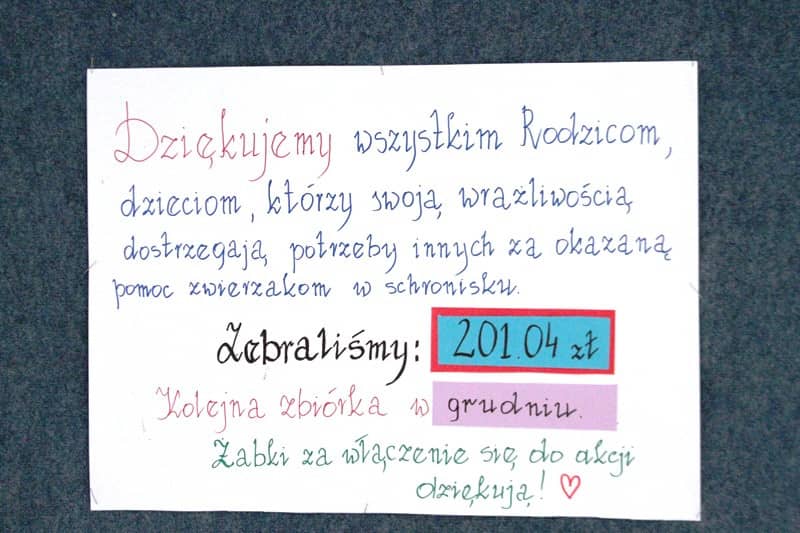 Dziękujemy wszystkim Rodzicom,
dzieciom, którzy swoją wrażliwością
dostrzegają potrzeby innych za okazaną
pomoc zwierzakom w schronisku.
Zebraliśmy: 201.04 zł
Kolejna zbiórka w grudniu.
Żabki za włączenie się do akcji
dziękują! ♡